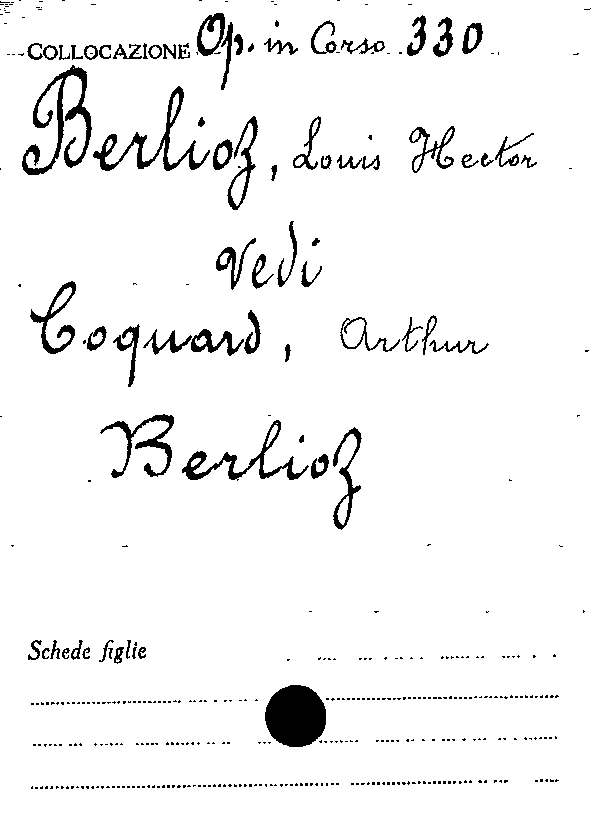 COLLOCAZIONE Op. in Corso 330
Berlioz, Louis Hector
Vedi
Coquard, Arthur
Berlioz
Schede figlie